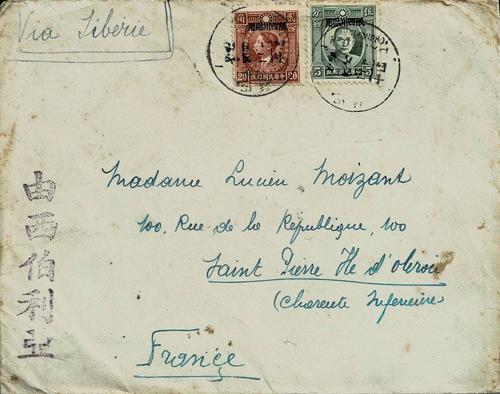 Via Siberie
20
20
5
5
由西伯利亞
Madame Lucien Moizant
100, Rue de la République, 100
Saint Pierre Ile d'Oleron
(Charente Inferieure
France